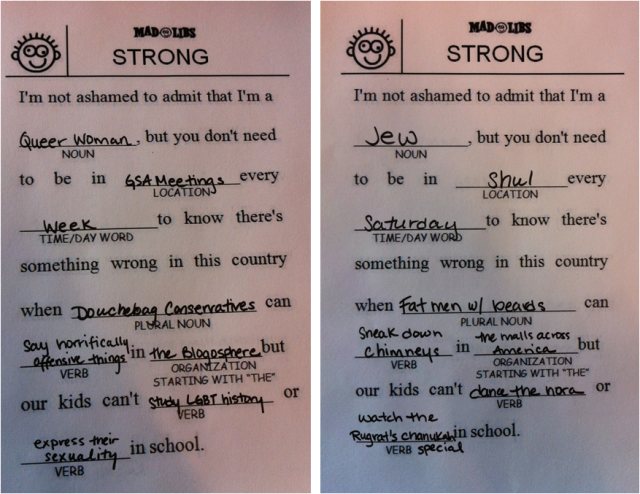 MAD LIBS
STRONG
I'm not ashamed to admit that I'm a
Queer Woman, but you don't need
NOUN
to be in GSA Meetings every
LOCATION
Week to know there's
TIME/DAY WORD
something wrong in this country
when Douchebag Conservatives can
PLURAL NOUN
Say horrifically
offensive things in the Blogosphere but
VERB ORGANIZATION
STARTING WITH "THE"
our kids can't study LGBT history or
VERB
express their
sexuality in school.
VERB
MAD LIBS
STRONG
I'm not ashamed to admit that I'm a
Jew, but you don't need
NOUN
to be in Shul every
LOCATION
Saturday to know there's
TIME/DAY WORD
something wrong in this country
when Fat men w/ beards can
PLURAL NOUN
Sneak down the malls across
chimneys in America but
VERB ORGANIZATION
STARTING WITH "THE"
our kids can't dance the hora or
VERB
watch the
Rugrat's chanukah in school.
VERB special